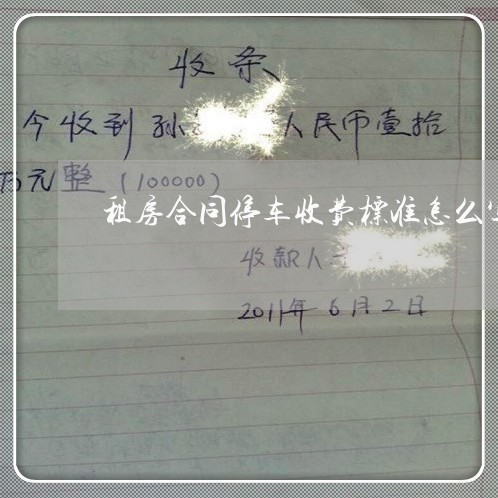 收条
今收到孙 人民币壹拾
万元整(100000)
租房合同停车收费标准怎么
收款人
2011年6月2日